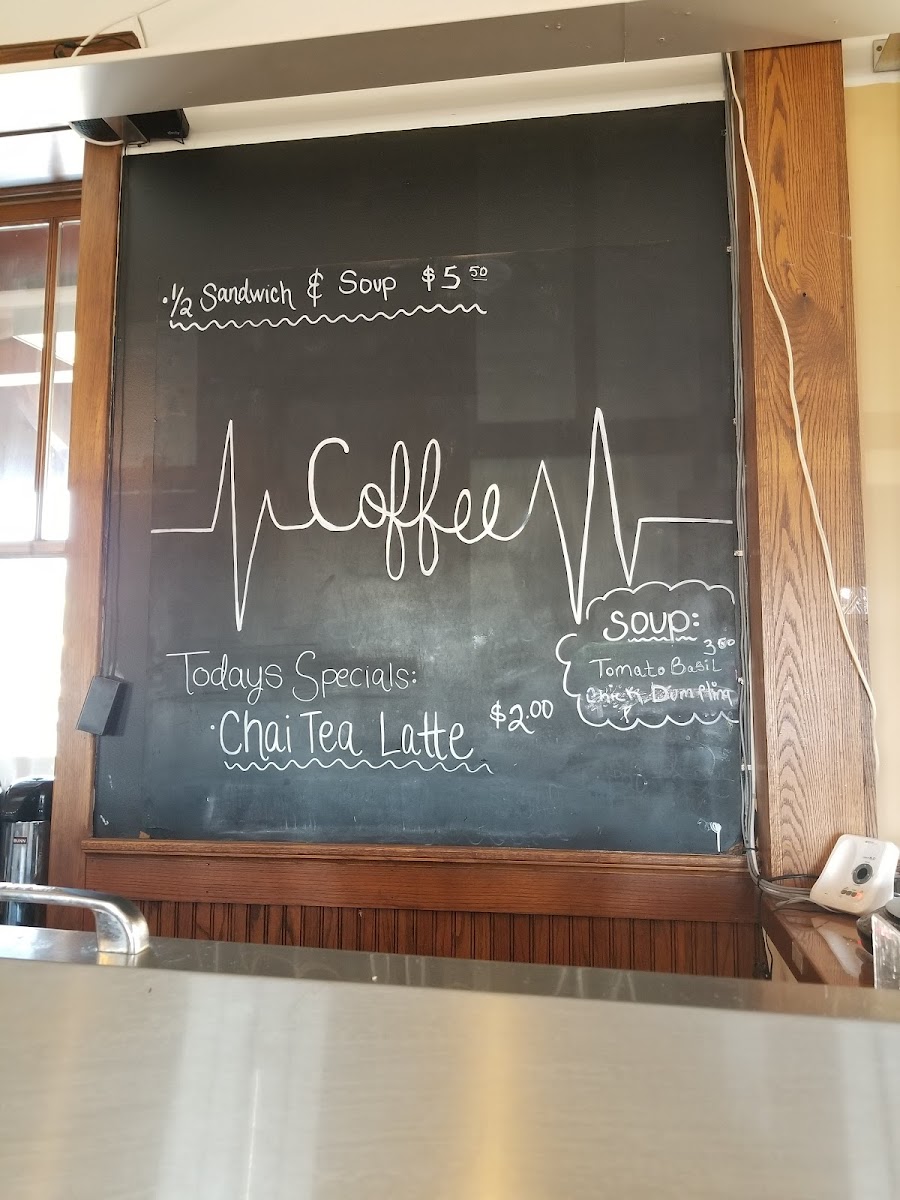 ·1/2 Sandwich & Soup $5 50
Coffee
Todays Specials:
·Chai Tea Latte $2.00
Soup:
Tomato Basil
Dumplin